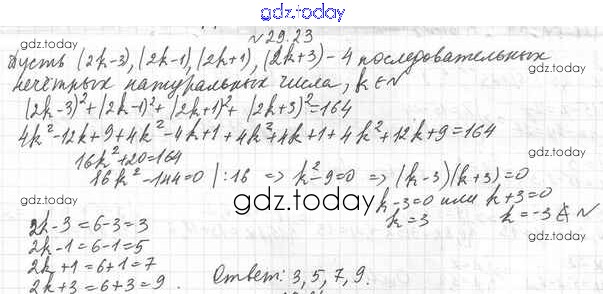 gdz.today
№29.23
gdz.today gdz.today
Пусть (2k-3), (2k-1), (2k+1), (2k+3) - 4 последовательных
нечётных натуральных числа, k ∈ N
(2k-3)²+(2k-1)²+(2k+1)²+(2k+3)²=164
4k²-12k+9+4k²-4k+1+4k²+4k+1+4k²+12k+9=164
16k²+20=164
gdz.today gdz.today
16k²-144=0 |:16 => k²-9=0 => (k-3)(k+3)=0
gdz.today
k-3=0 или k+3=0
k=3 k=-3 ∉ N
2k-3=6-3=3
2k-1=6-1=5
2k+1=6+1=7
2k+3=6+3=9.
Ответ: 3, 5, 7, 9.
gdz.today gdz.today